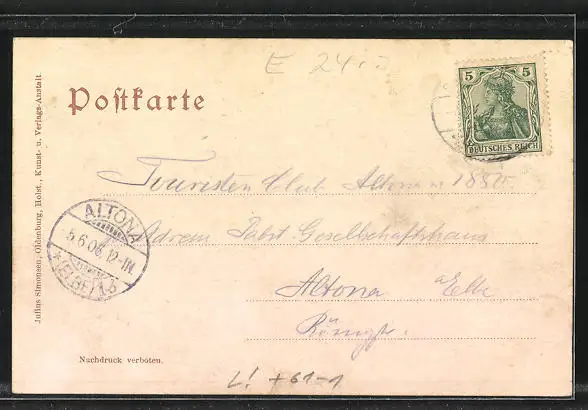 E 24
Postkarte
5 5
DEUTSCHES REICH
Touristen Club Altona v 1880
Adrem Pabst Gesellschaftshaus
Altona a Elbe
Königstr.
ALTONA
5.6.06. 12-1N.
* (ELBE) 1
Julius Simonsen, Oldenburg, Holst., Kunst- u. Verlags-Anstalt
Nachdruck verboten.
L! +61-1